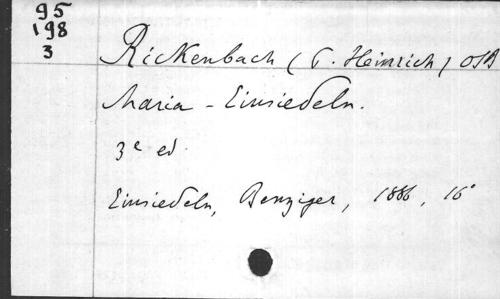 95
198
3
Rickenbach (P. Heinrich) OSB
Maria - Einsiedeln.
3e ed.
Einsiedeln, Benziger, 1886, 16°